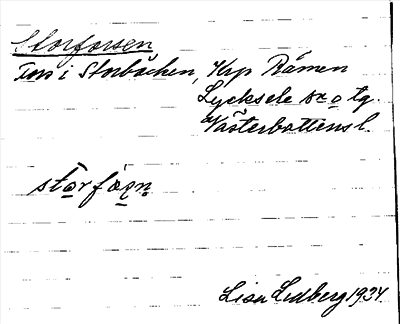 Storforsen
Fors i Storbäcken, Krp Råmen
Lycksele sn o tg.
Västerbottens l.
stọ̄rfǫṣṇ
Lisa Lidberg 1934.